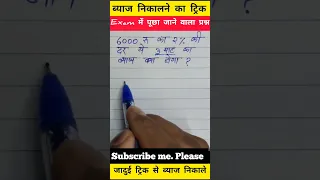 ब्याज निकालने का ट्रिक
Exam में पूछा जाने वाला प्रश्न
6000 रु का 2% की
दर से 3 माह का
ब्याज क्या होगा ?
Subscribe me. Please
जादुई ट्रिक से ब्याज निकाले